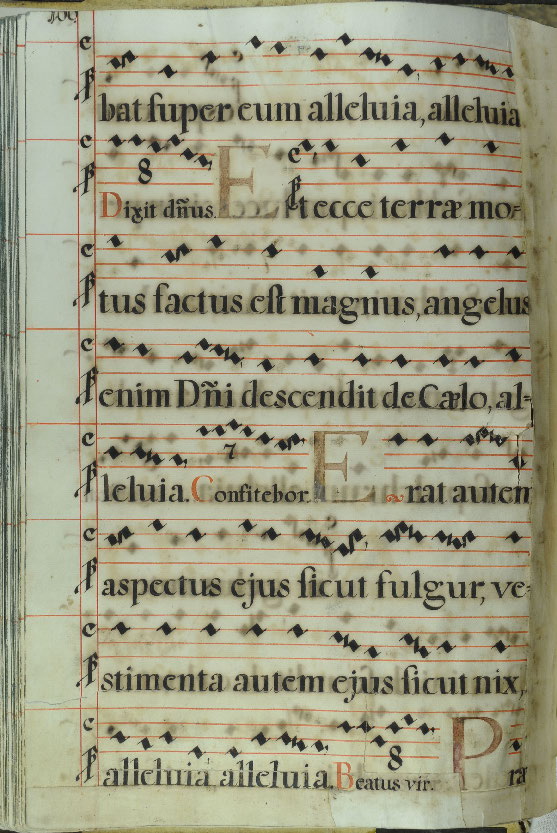 bat super eum alleluia, alleluia
8
Dixit dñus. Et ecce terræ mo-
tus factus est magnus, angelus
enim Dñi descendit de Cælo, al-
7
leluia. Confitebor. Erat autem
aspectus ejus sicut fulgur, ve-
stimenta autem ejus sicut nix,
8
alleluia, alleluia. Beatus vir. Præ